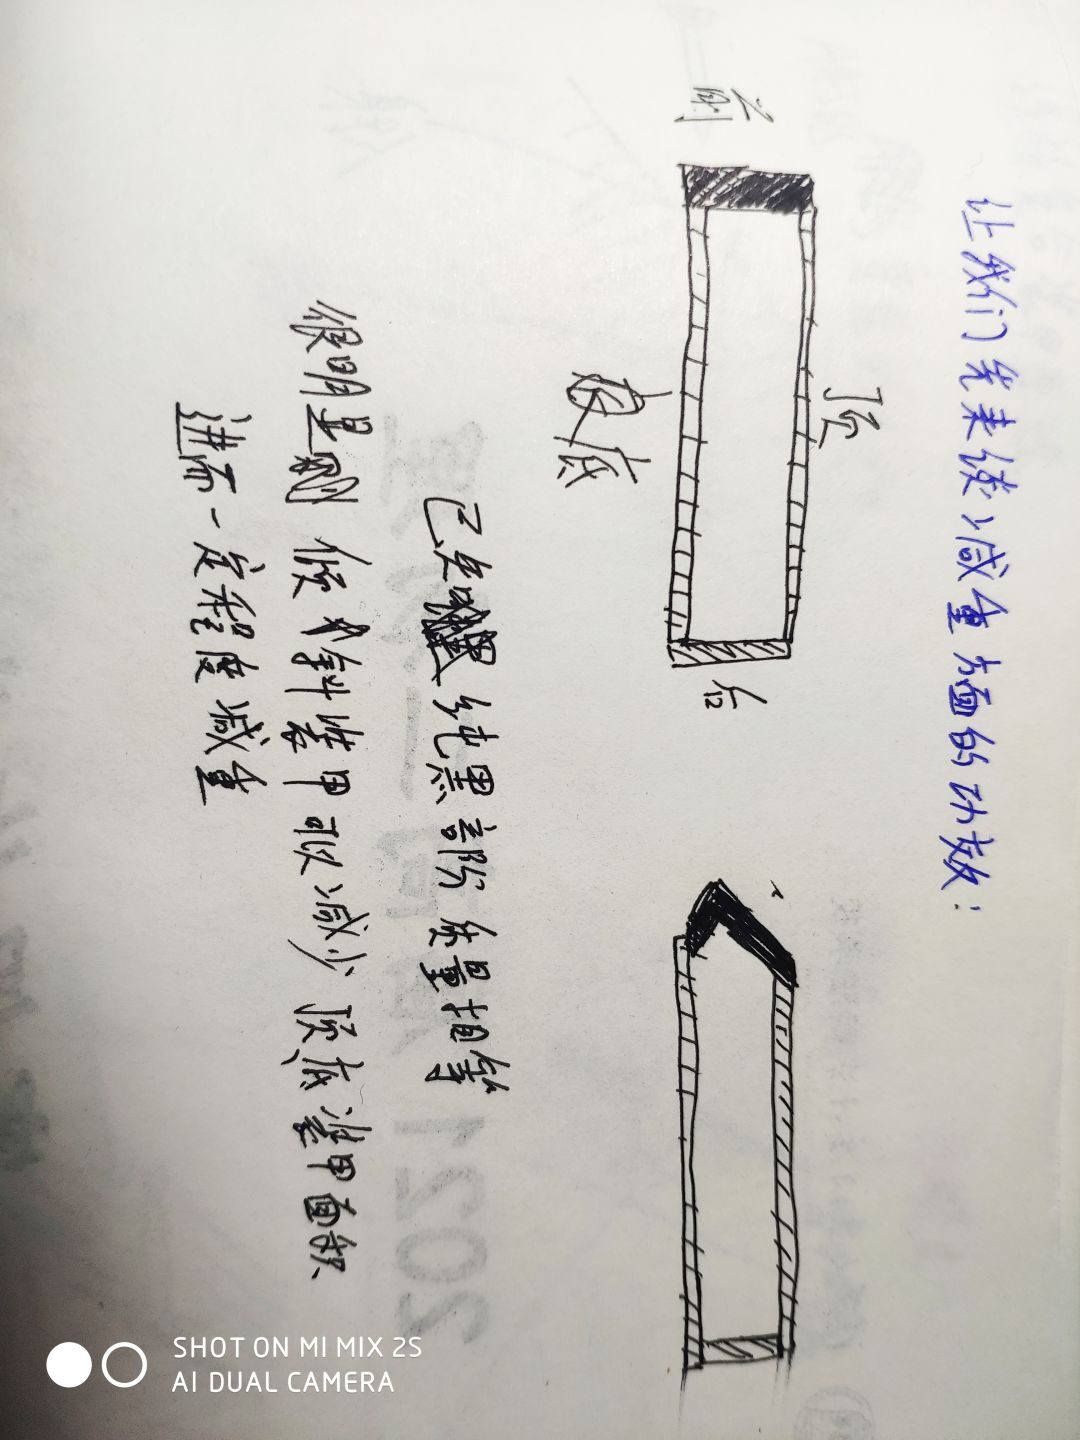 让我们先来谈减重方面的功效：
前
顶
底
后
已知 纯黑部份质量相等
很明显 倾斜装甲可以减少顶底装甲面积
进而一定程度减重
2021
SHOT ON MI MIX 2S
AI DUAL CAMERA